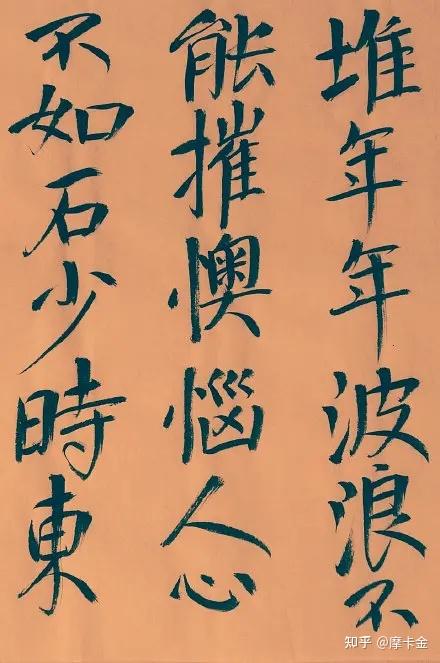 堆年年波浪不
能摧懊惱人心
不如石少時東
知乎 @摩卡金